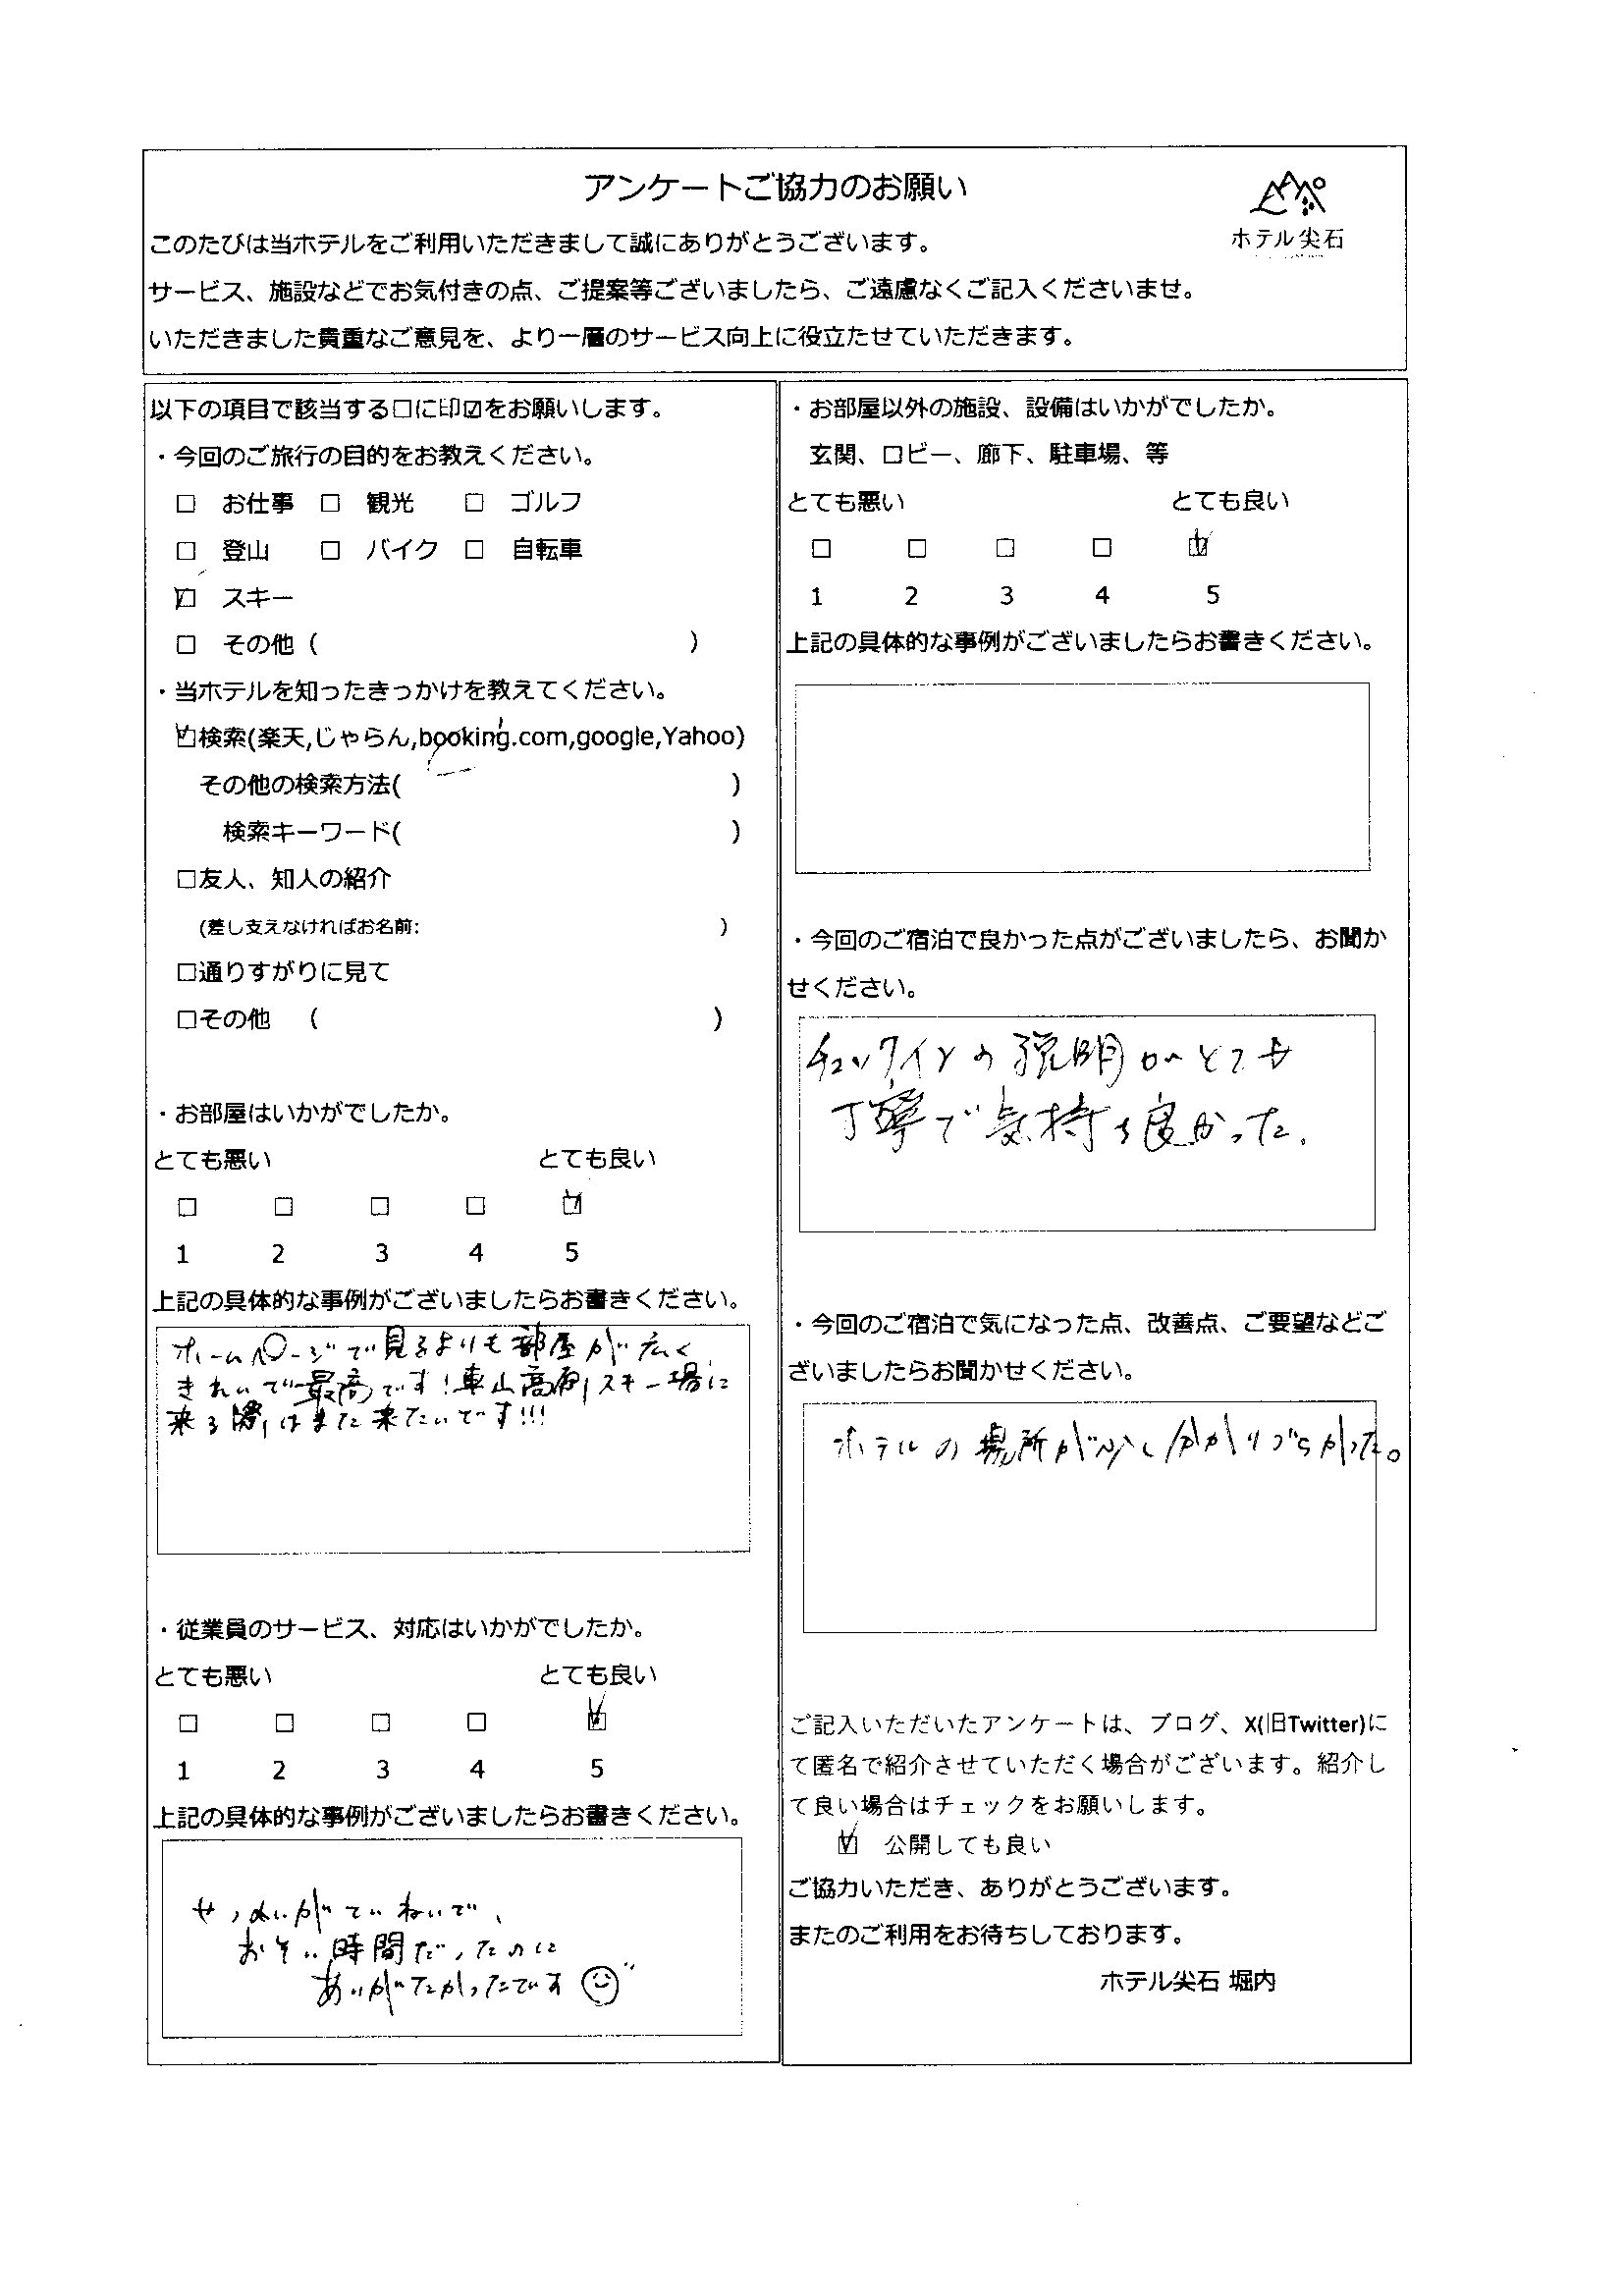 アンケートご協力のお願い
ホテル尖石
このたびは当ホテルをご利用いただきまして誠にありがとうございます。
サービス、施設などでお気付きの点、ご提案等ございましたら、ご遠慮なくご記入くださいませ。
いただきました貴重なご意見を、より一層のサービス向上に役立たせていただきます。
以下の項目で該当する□に印☑をお願いします。
・今回のご旅行の目的をお教えください。
□ お仕事 □ 観光 □ ゴルフ
□ 登山 □ バイク □ 自転車
☑ スキー
□ その他 ( )
・当ホテルを知ったきっかけを教えてください。
☑検索(楽天,じゃらん,booking.com,google,Yahoo)
その他の検索方法( )
検索キーワード( )
□友人、知人の紹介
(差し支えなければお名前: )
□通りすがりに見て
□その他 ( )
・お部屋はいかがでしたか。
とても悪い とても良い
□ □ □ □ ☑
1 2 3 4 5
上記の具体的な事例がございましたらお書きください。
ホームページで見るよりも部屋が広く、
きれいで最高です!車山高原スキー場に
来る際はまた来たいです!!!
・従業員のサービス、対応はいかがでしたか。
とても悪い とても良い
□ □ □ □ ☑
1 2 3 4 5
上記の具体的な事例がございましたらお書きください。
せつめいがていねいで、
おそい時間だったのに
ありがたかったです☺
・お部屋以外の施設、設備はいかがでしたか。
玄関、ロビー、廊下、駐車場、等
とても悪い とても良い
□ □ □ □ ☑
1 2 3 4 5
上記の具体的な事例がございましたらお書きください。
・今回のご宿泊で良かった点がございましたら、お聞か
せください。
チェックインの説明がとても
丁寧で気持ち良かった.
・今回のご宿泊で気になった点、改善点、ご要望などご
ざいましたらお聞かせください。
ホテルの場所が少し分かりづらかった。
ご記入いただいたアンケートは、ブログ、X(旧Twitter)に
て匿名で紹介させていただく場合がございます。紹介し
て良い場合はチェックをお願いします。
☑ 公開しても良い
ご協力いただき、ありがとうございます。
またのご利用をお待ちしております。
ホテル尖石 堀内